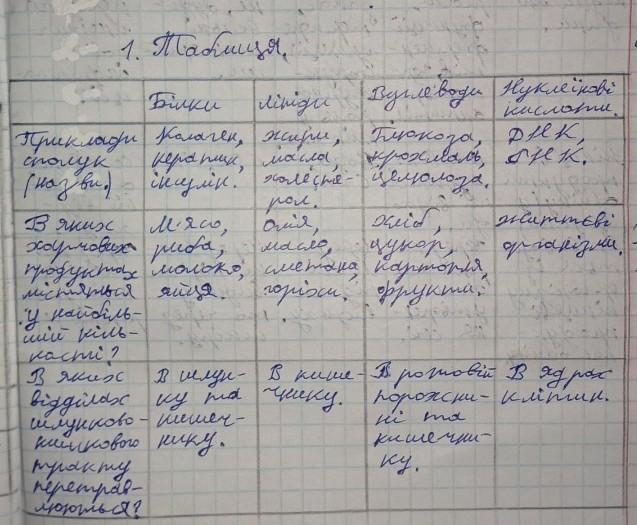 1. Таблиця.
Білки
Ліпіди
Вуглеводи
Нуклеїнові
кислоти.
Приклади
сполук
(назви.)
Колаген,
кератин,
інсулін.
Жири,
масла,
холесте-
рол.
Глюкоза,
крохмаль,
целюлоза.
ДНК,
РНК.
В яких
харчових
продуктах
містяться
у найбіль-
шій кіль-
кості?
М'ясо,
риба,
молоко,
яйця.
Олія,
масло,
сметана,
горіхи.
Хліб,
цукор,
картопля,
фрукти.
життєві
організми.
В яких
відділах
шлунково-
кишкового
тракту
перетрав-
люються?
В шлун-
ку та
кишеч-
нику.
В кише-
чнику.
В ротовій
порожни-
ні та
кишечни-
ку.
В ядрах
клітин.